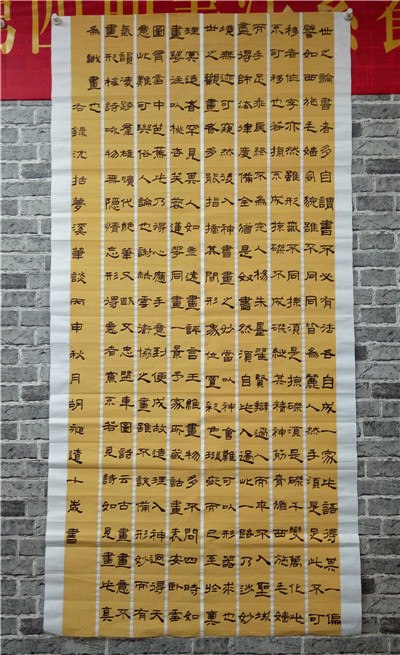 世之論書者多自謂書不必有法各自成一家此語得其一偏
譬如西施毛嬙容貌雖不同皆為麗人然手須是足此不可
移者作字亦然雖形氣不同掠須是掠磔須是磔千變萬化此
不可移也若掠不成掠磔不成磔縱其精神筋骨猶西施毛嬙
而手足乖戾終不為完人楊朱墨翟賢辯過人而來不入聖域
盡得師法律度備全猶是奴書然須自此入過此一路乃涉妙
境無跡可窺然後入神書畫之妙當以神會難可以形器求也
世之觀畫者多能指摘其間形象位置彩色瑕疵而已至於奧
理冥造者罕見其人如彥遠畫評言王維畫物多不問四時如
畫花往以桃杏芙蓉蓮花同畫一景予家所藏詰畫袁安臥雪
圖有雪中芭蕉此乃得心應手意到便成故造理入神迥得天
意此難可與俗人論也謝赫云衛協之畫雖不該備形妙而有
氣韻凌跨群雄曠代絕筆又歐文忠盤車圖詩云古畫畫意不
畫形梅詩詠物無隱情忘形得意知者寡不若見詩如見畫此真
為識畫也
右錄沈括夢溪筆談丙申秋月胡遠十歲書